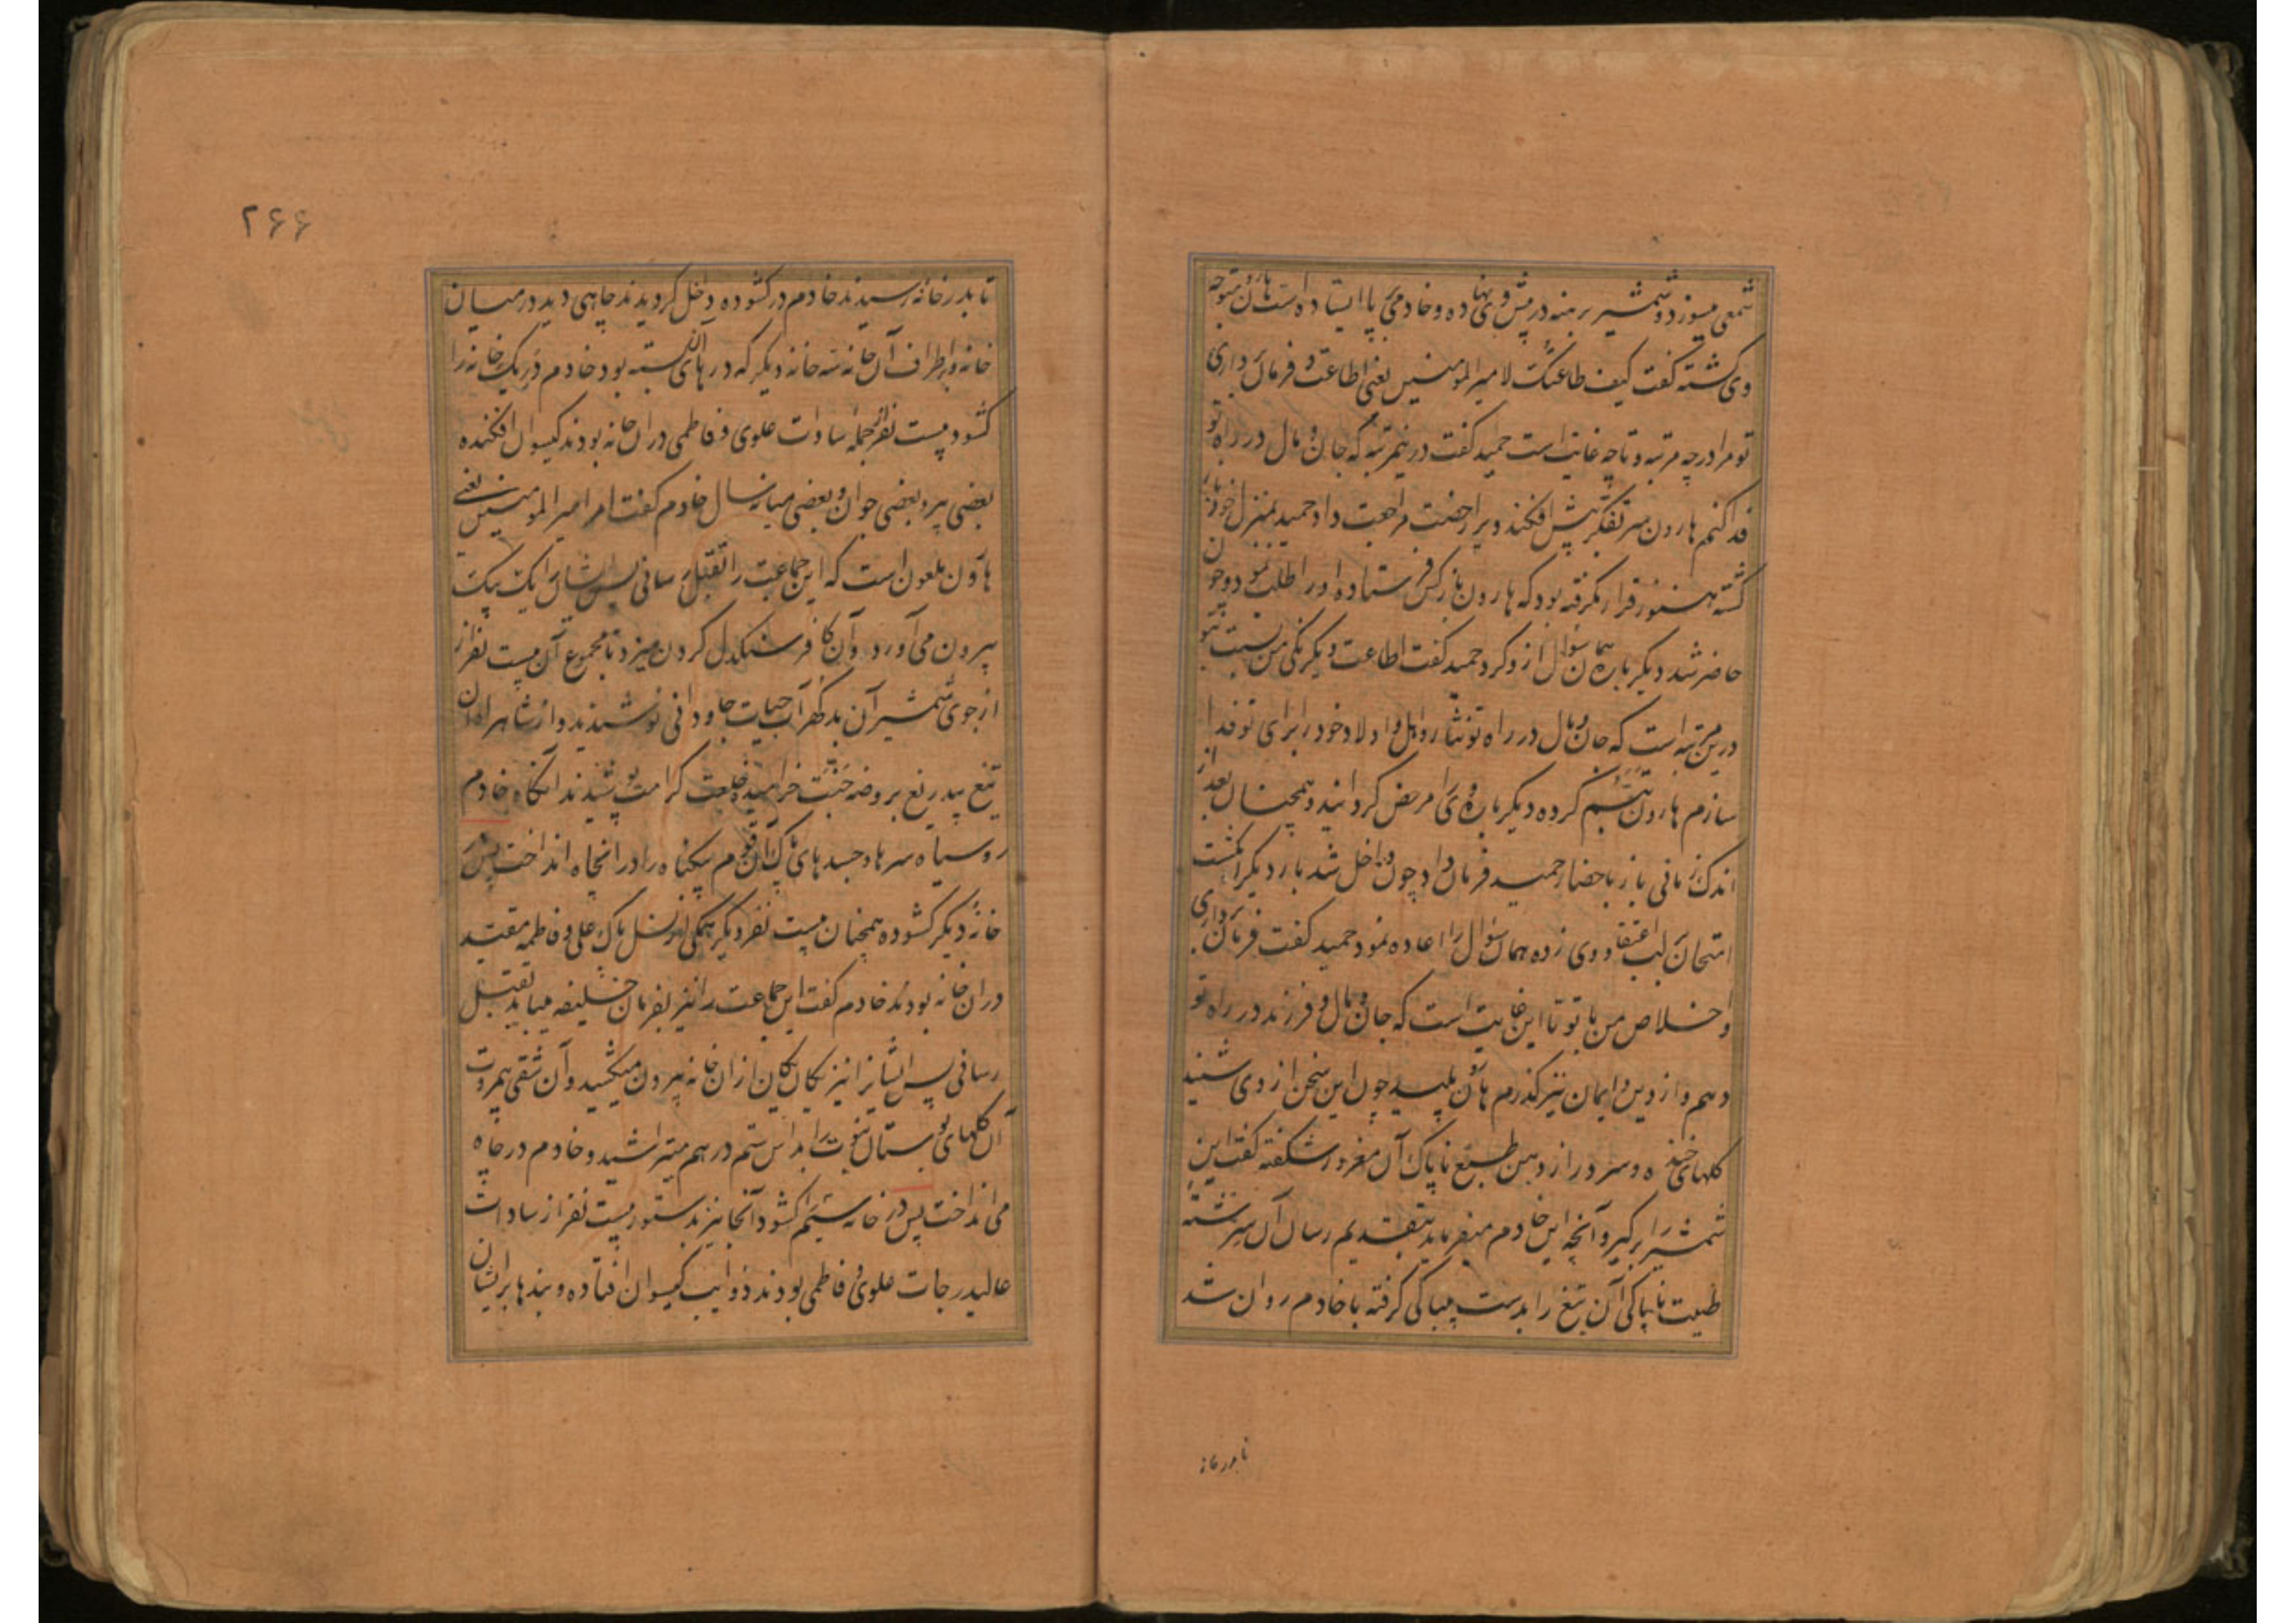 شمعی میسوزد و شمشیر برهنه در پیش وی نهاده و خادمی بر پا ایستاده است هارون متوجه
وی گشته گفت کیف طاعتک لامیر المومنین یعنی اطاعت و فرمان داری
تو مرا در چه مرتبه و تا چه غایت است حمید گفت درین مرتبه که جان و مال در راه تو
فدا کنم هارون سر تفکر پیش افکند و ویرا رخصت مراجعت داد حمید بمنزل خود باز
گشته هنوز قرار نگرفته بود که هارون باز کس فرستاده او را طلب نمود و چون
حاضر شد دیگر باره همان سوال از و کرد حمید گفت اطاعت و یکرنگی من نسبت بتو
درین مرتبه است که جان و مال در راه تو نثار و اهل و اولاد خود را برای تو فدا
سازم هارون تبسم کرده دیگر باره وی را مرخص گردانید و همچنان بعد از
اندک زمانی باز باحضار حمید فرمان داد چون داخل شد بار دیگر انگشت
امتحان بر لب اعتقاد وی زده همان سوال را اعاده نمود حمید گفت فرمان برداری
و اخلاص من با تو تا این غایت است که جان و مال و فرزند در راه تو
دهم و از دین و ایمان نیز گذرم هارون پلید چون این سخن از وی شنید
گلهای خنده و سرور از دهن طبع ناپاک آن مغرور شکفته گفت این
شمشیر را برگیر و آنچه این خادم میفرماید بتقدیم رسان آن سرشته
طینت ناپاکی آن تیغ را بدست بیباکی گرفته با خادم روان شد
تا بدر خانه
۲۶۶
تا بدر خانه رسیدند خادم در کشوده داخل گردیدند چاهی دید در میان
خانه و بر اطراف آن خانه سه خانه دیگر که درهای آن بسته بود خادم در یک خانه را
کشود بیست نفر از جمله سادات علوی و فاطمی در ان خانه بودند کیسوان افکنده
بعضی پیر و بعضی جوان و بعضی میانه سال خادم گفت امر امیر المومنین یعنی
هارون ملعون است که این جماعت را بقتل رسانی پس ایشان را یک بیک
بیرون می آورد و آن کافر سنگدل گردن میزد تا مجموع آن بیست نفر از
از جوی شمشیر آن بدگهر آب حیات جاودانی نوشیدند و از شاهراه آن
تیغ بیدریغ بروضه جنت خرامیده خلعت کرامت پوشیدند آنگاه خادم
رو سیاه سرها و جسدهای پاک آن قوم بیگناه را در انچاه انداخت پس در
خانه دیگر کشوده همچنان بیست نفر دیگر همگی از نسل پاک علی و فاطمه مقید
دران خانه بودند خادم گفت این جماعت را نیز بفرمان خلیفه میباید بقتل
رسانی پس ایشانرا نیز یکان یکان ازان خانه بیرون میکشید و آن شقی بیمروت
آن گلهای بوستان نبوت را بداس ستم در هم میتراشید و خادم در چاه
می انداخت پس در خانه سیم را کشود آنجا نیز بدستور بیست نفر از سادات
عالیدرجات علوی و فاطمی بودند ذوایب کیسوان افتاده و بندها بر ایشان